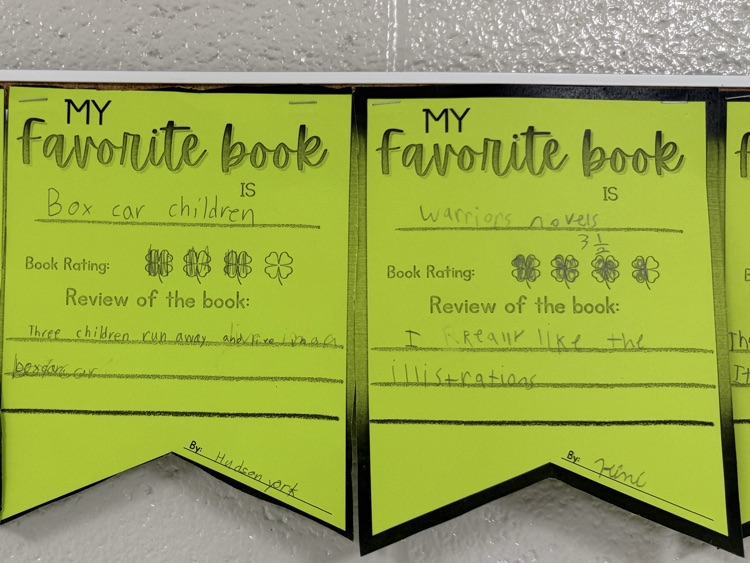 MY
favorite book
IS
Box car children
Book Rating:
Review of the book:
Three children run away and live in a
boxcar
By: Hudson york
MY
favorite book
IS
Warriors novels
3 1/2
Book Rating:
Review of the book:
I Rreally like the
illistrations
By: